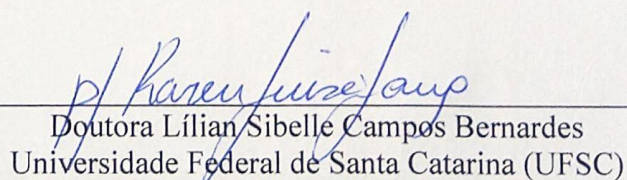 p/ Karen Luize Lang
Doutora Lílian Sibelle Campos Bernardes
Universidade Federal de Santa Catarina (UFSC)